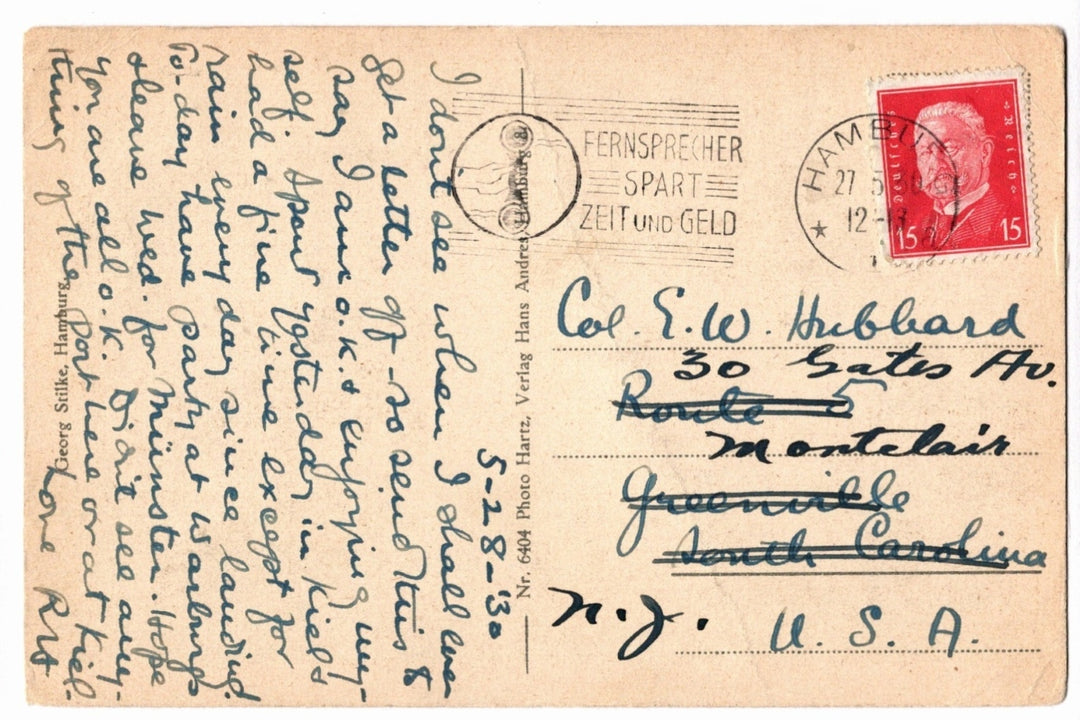 5-28-'30
I don't see when I shall ever
get a letter off - so send this to
say I am o.k. & enjoying my-
self. Spent yesterday in Kiel &
had a fine time except for
rain every day since landing.
To-day have party at Warburgs
& leave Wed. for Münster. Hope
you are all o.k. Didn't see any-
thing of the Port here or at Kiel.
Love
Georg Stilke, Hamburg.
Nr. 6404 Photo Hartz, Verlag Hans Andres, Hamburg 8
FERNSPRECHER
SPART
ZEIT UND GELD
HAMBURG
27 5
Deutsches Reich
15 15
Col. E. W. Hubbard
30 Gates Av.
Route 5
Montclair
Greenville
South Carolina
N.J.
U. S. A.